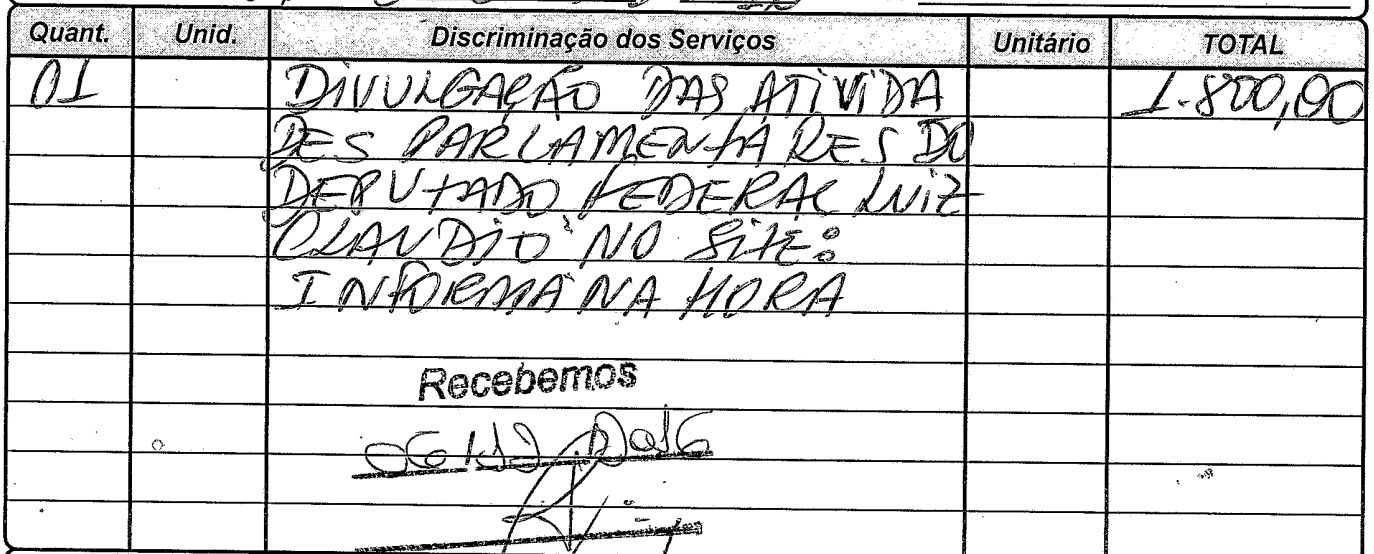 Quant. Unid. Discriminação dos Serviços Unitário TOTAL
01 DIVULGAÇÃO DAS ATIVIDA 1.800,00
DES PARLAMENTARES DO
DEPUTADO FEDERAL LUIZ
CLAUDIO NO SITE:
INFORMA NA HORA
Recebemos